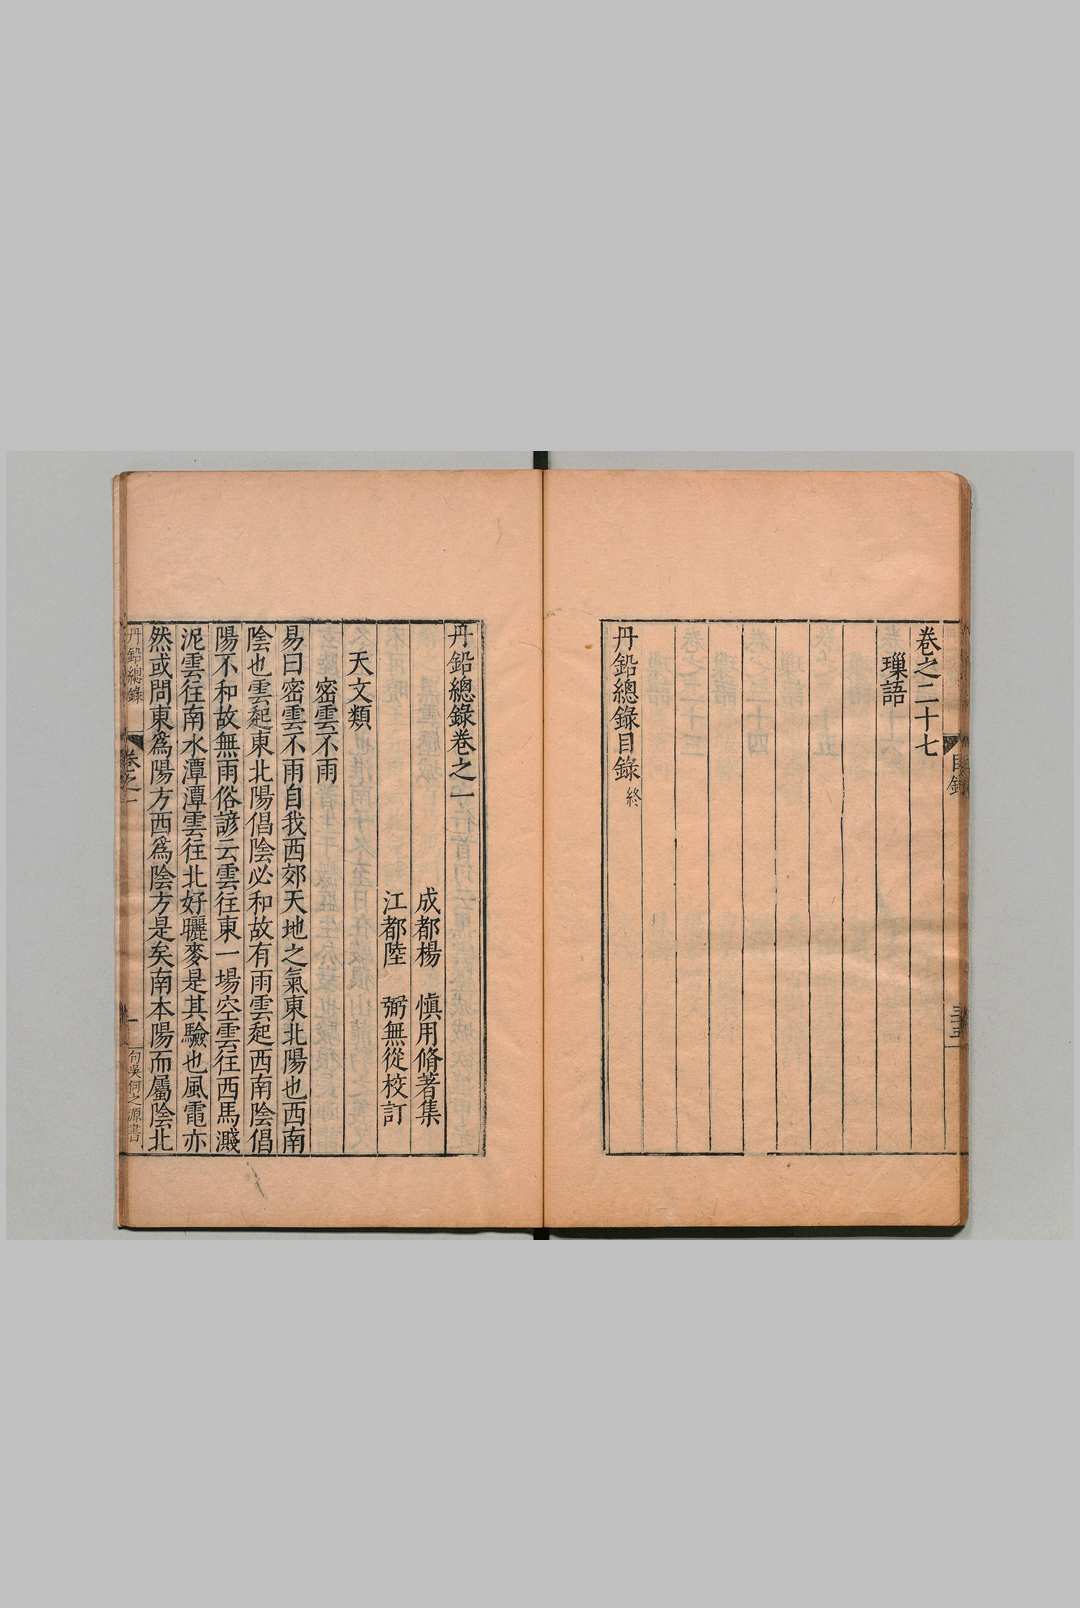 卷之二十七
璅語
丹鉛總錄目錄 終
目錄
三十五
丹鉛總錄卷之一
成都楊 慎用脩著集
江都陸 弼無從校訂
天文類
密雲不雨
易曰密雲不雨自我西郊天地之氣東北陽也西南
陰也雲起東北陽倡陰必和故有雨雲起西南陰倡
陽不和故無雨俗諺云雲往東一場空雲往西馬濺
泥雲往南水潭潭雲往北好曬麥是其驗也風電亦
然或問東爲陽方西爲陰方是矣南本陽而屬陰北
丹鉛總錄 卷之一 一 句吳何之源書